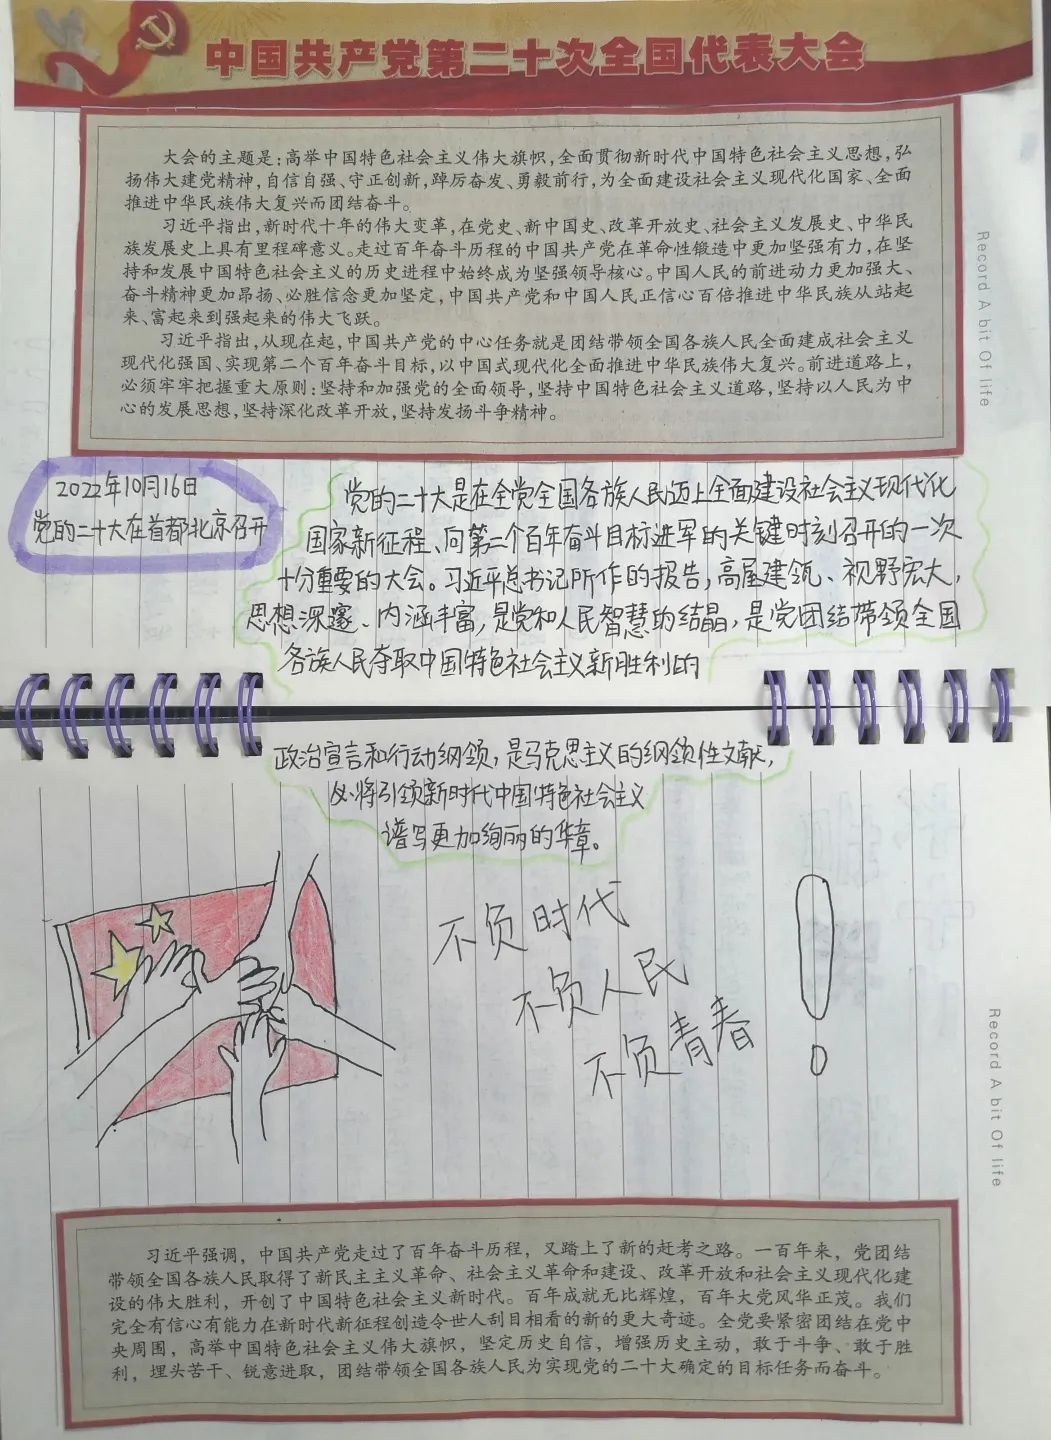 中国共产党第二十次全国代表大会
大会的主题是：高举中国特色社会主义伟大旗帜，全面贯彻新时代中国特色社会主义思想，弘
扬伟大建党精神，自信自强、守正创新，踔厉奋发、勇毅前行，为全面建设社会主义现代化国家、全面
推进中华民族伟大复兴而团结奋斗。
习近平指出，新时代十年的伟大变革，在党史、新中国史、改革开放史、社会主义发展史、中华民
族发展史上具有里程碑意义。走过百年奋斗历程的中国共产党在革命性锻造中更加坚强有力，在坚
持和发展中国特色社会主义的历史进程中始终成为坚强领导核心。中国人民的前进动力更加强大、
奋斗精神更加昂扬、必胜信念更加坚定，中国共产党和中国人民正信心百倍推进中华民族从站起
来、富起来到强起来的伟大飞跃。
习近平指出，从现在起，中国共产党的中心任务就是团结带领全国各族人民全面建成社会主义
现代化强国、实现第二个百年奋斗目标，以中国式现代化全面推进中华民族伟大复兴。前进道路上，
必须牢牢把握重大原则：坚持和加强党的全面领导，坚持中国特色社会主义道路，坚持以人民为中
心的发展思想，坚持深化改革开放，坚持发扬斗争精神。
Record A bit Of life
2022年10月16日
党的二十大在首都北京召开
党的二十大是在全党全国各族人民迈上全面建设社会主义现代化
国家新征程、向第二个百年奋斗目标进军的关键时刻召开的一次
十分重要的大会。习近平总书记所作的报告，高屋建瓴、视野宏大，
思想深邃、内涵丰富，是党和人民智慧的结晶，是党团结带领全国
各族人民夺取中国特色社会主义新胜利的
政治宣言和行动纲领，是马克思主义的纲领性文献，
必将引领新时代中国特色社会主义
谱写更加绚丽的华章。
不负时代
不负人民
不负青春
！
Record A bit Of life
习近平强调，中国共产党走过了百年奋斗历程，又踏上了新的赶考之路。一百年来，党团结
带领全国各族人民取得了新民主主义革命、社会主义革命和建设、改革开放和社会主义现代化建
设的伟大胜利，开创了中国特色社会主义新时代。百年成就无比辉煌，百年大党风华正茂。我们
完全有信心有能力在新时代新征程创造令世人刮目相看的新的更大奇迹。全党要紧密团结在党中
央周围，高举中国特色社会主义伟大旗帜，坚定历史自信，增强历史主动，敢于斗争、敢于胜
利，埋头苦干、锐意进取，团结带领全国各族人民为实现党的二十大确定的目标任务而奋斗。